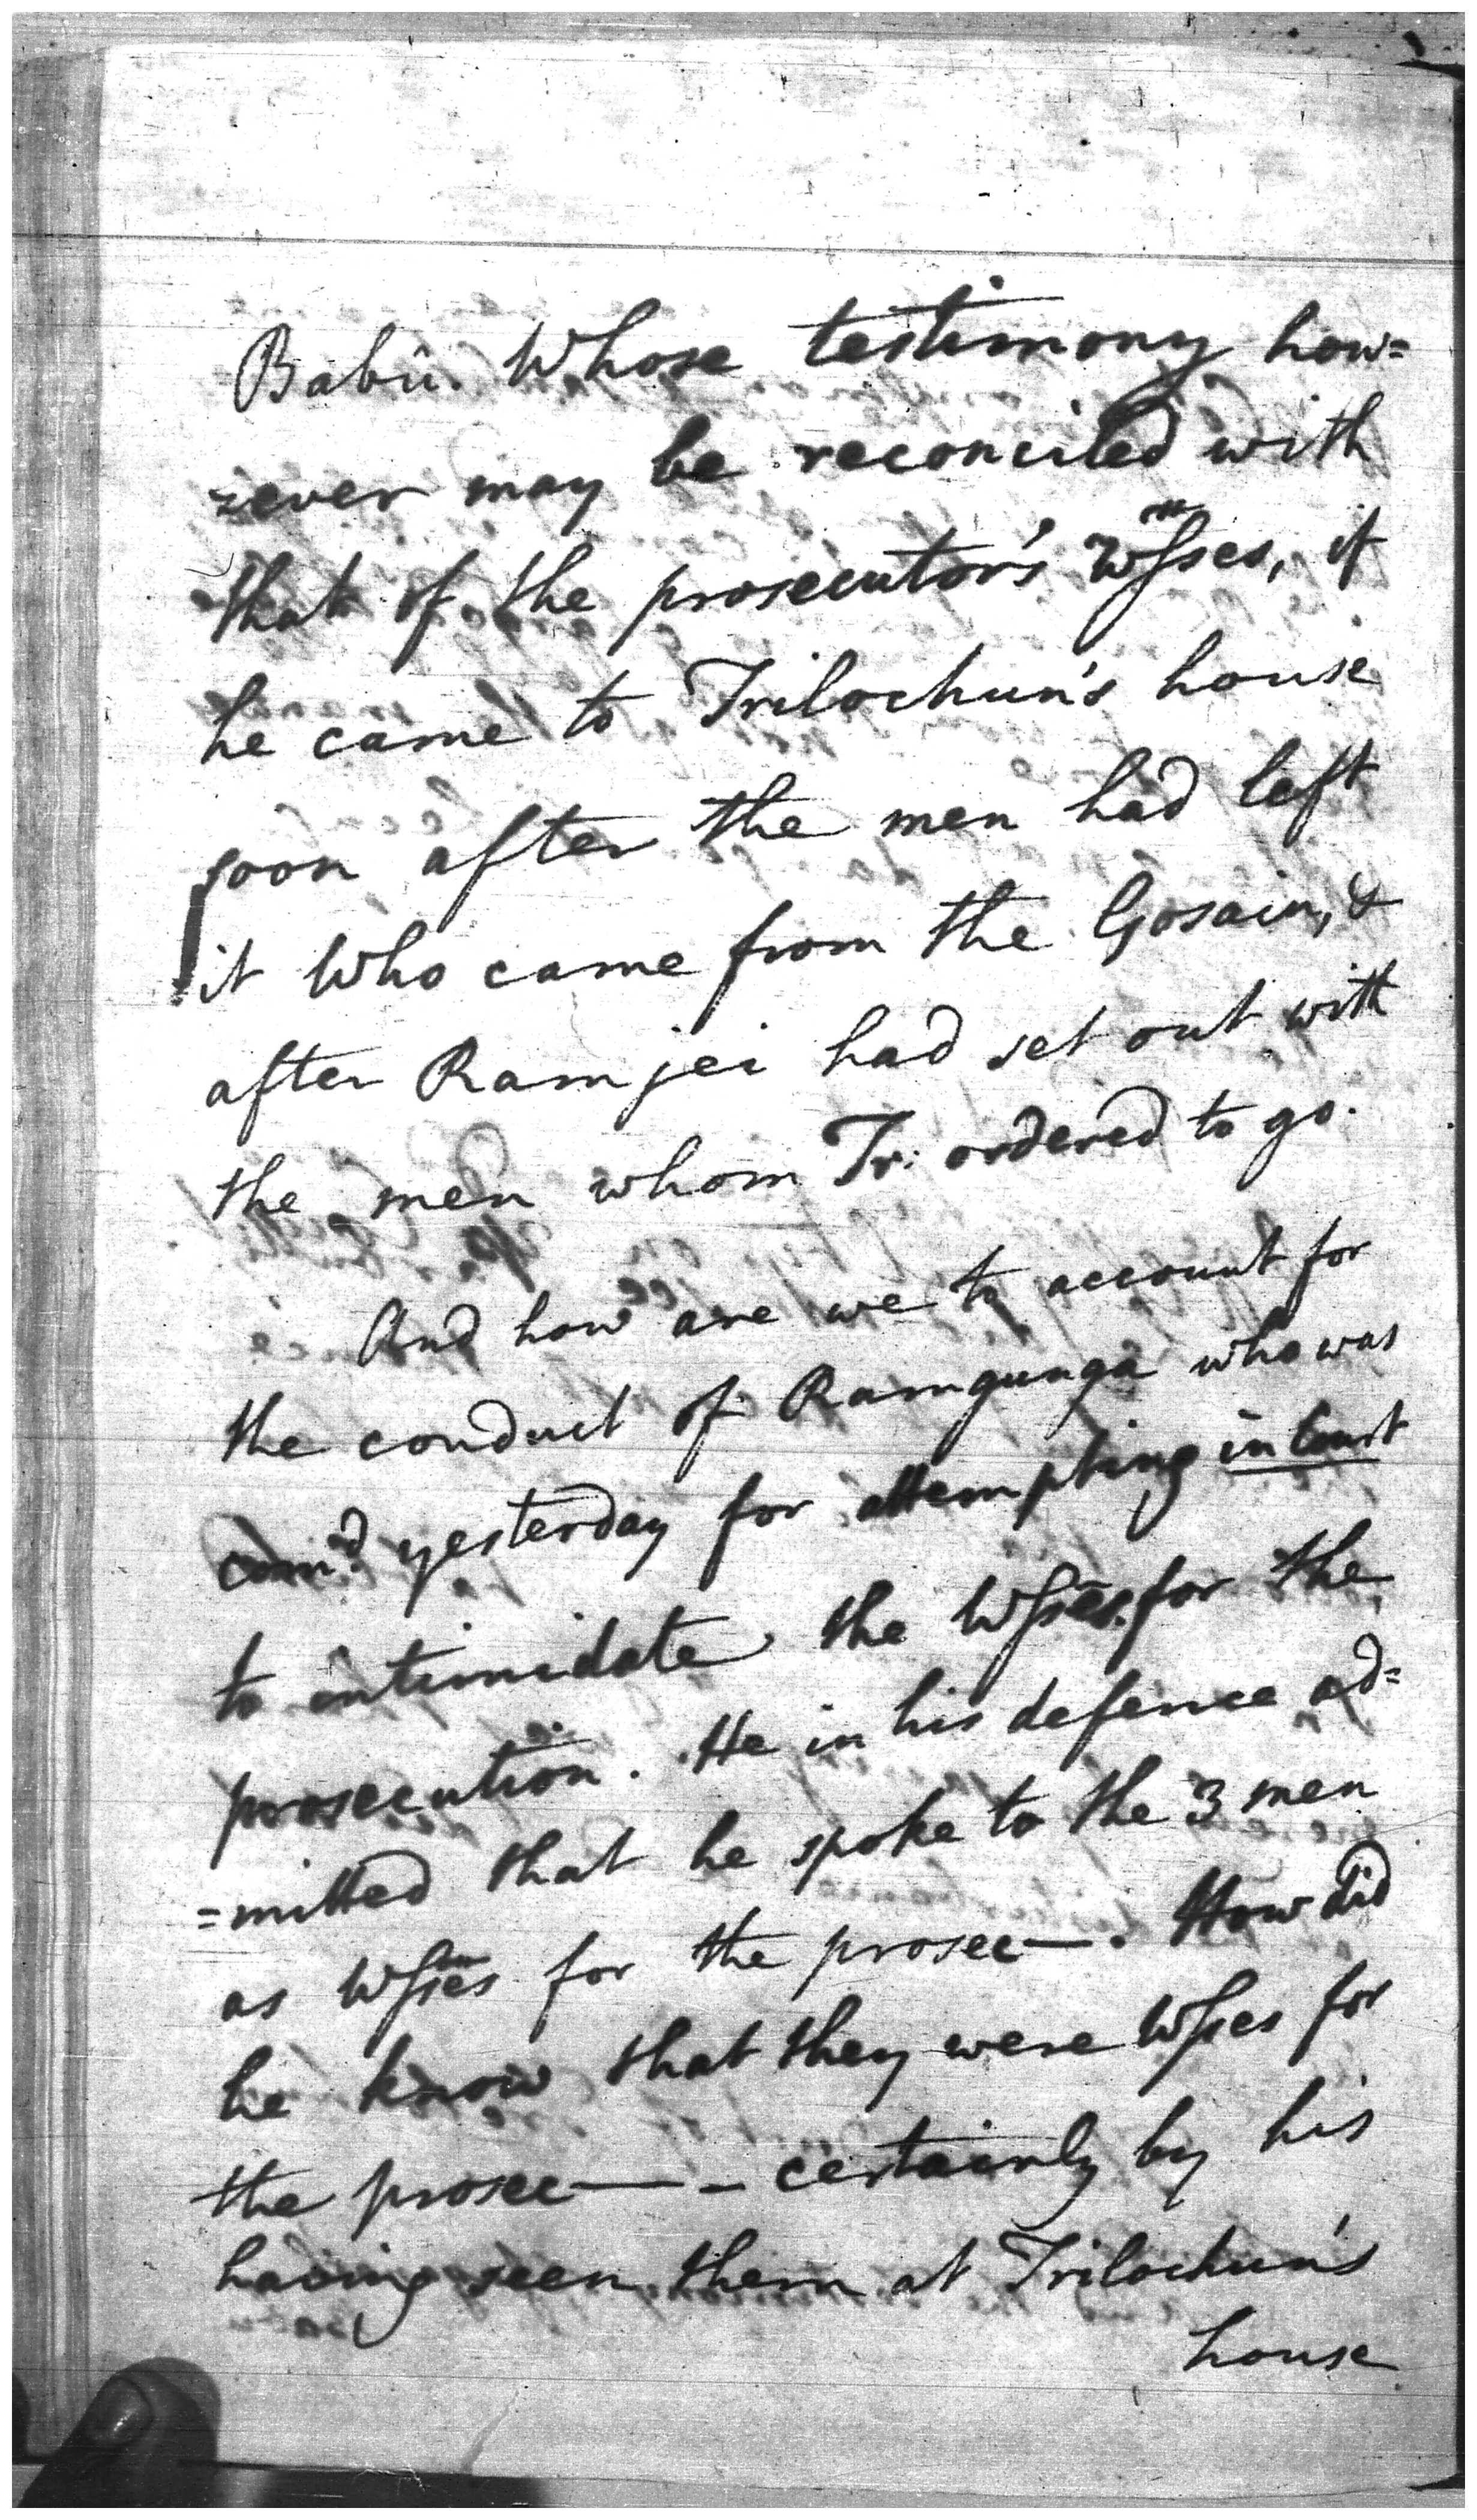 Babû. Whose testimony how=
=ever may be reconciled with
that of the prosecutor's Wſses, if
he came to Trilochun's house
soon after the men had left
it Who came from the Gosain, &
after Ramjei had set out with
the men whom Tr: ordered to go.
And how are we to account for
the conduct of Ramgunga who was
com.d yesterday for attempting in Court
to intimidate the Wſses for the
prosecution. He in his defence ad=
=mitted that he spoke to the 3 men
as Wſses for the prosec—. How did
he know that they were Wſses for
the prosec— – certainly by his
having seen them at Trilochun's
house